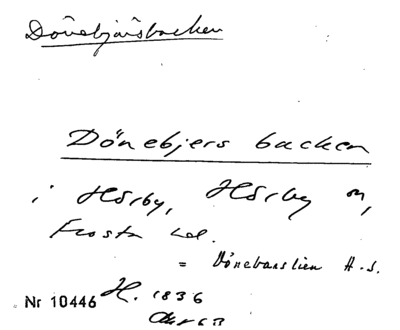 Dönebjärsbacken
Dönebjers backen
i Hörby, Hörby sn,
Frosta hd.
= Dönebanslien A.S.
Nr 10446 H. 1836